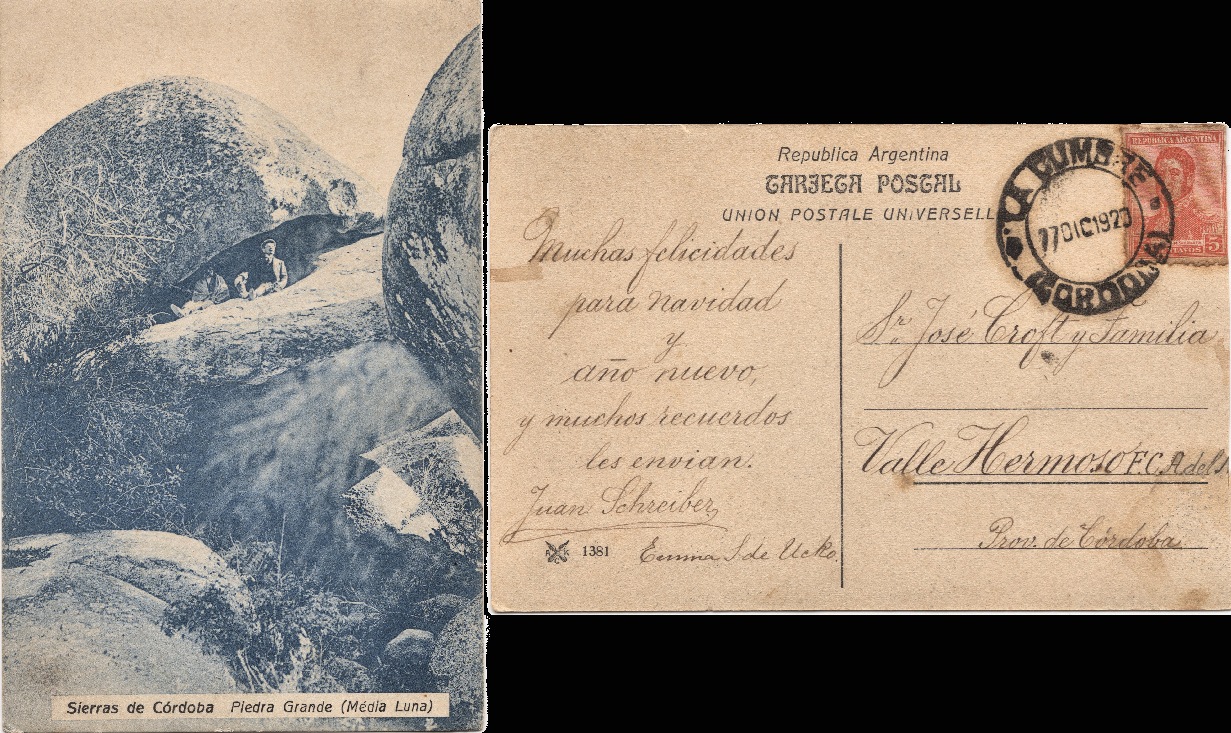 Sierras de Córdoba Piedra Grande (Média Luna)
Republica Argentina
TARJETA POSTAL
UNION POSTALE UNIVERSELL
REPUBLICA ARGENTINA
5
LA CUMBRE
DIC 1923
CORDOBA
Muchas felicidades
para navidad
y
año nuevo,
y muchos recuerdos
les envian.
Juan Schreiber
1381 Emma S de Ucko.
Sr. José Croft y Familia
Valle Hermoso F.C.
Prov. de Córdoba